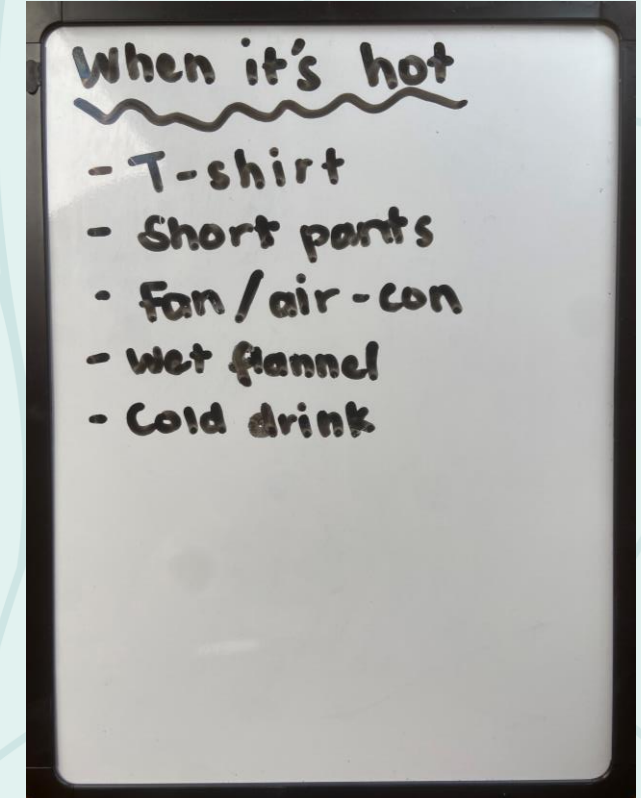 When it's hot
- T-shirt
- Short pants
- Fan/air-con
- Wet flannel
- Cold drink